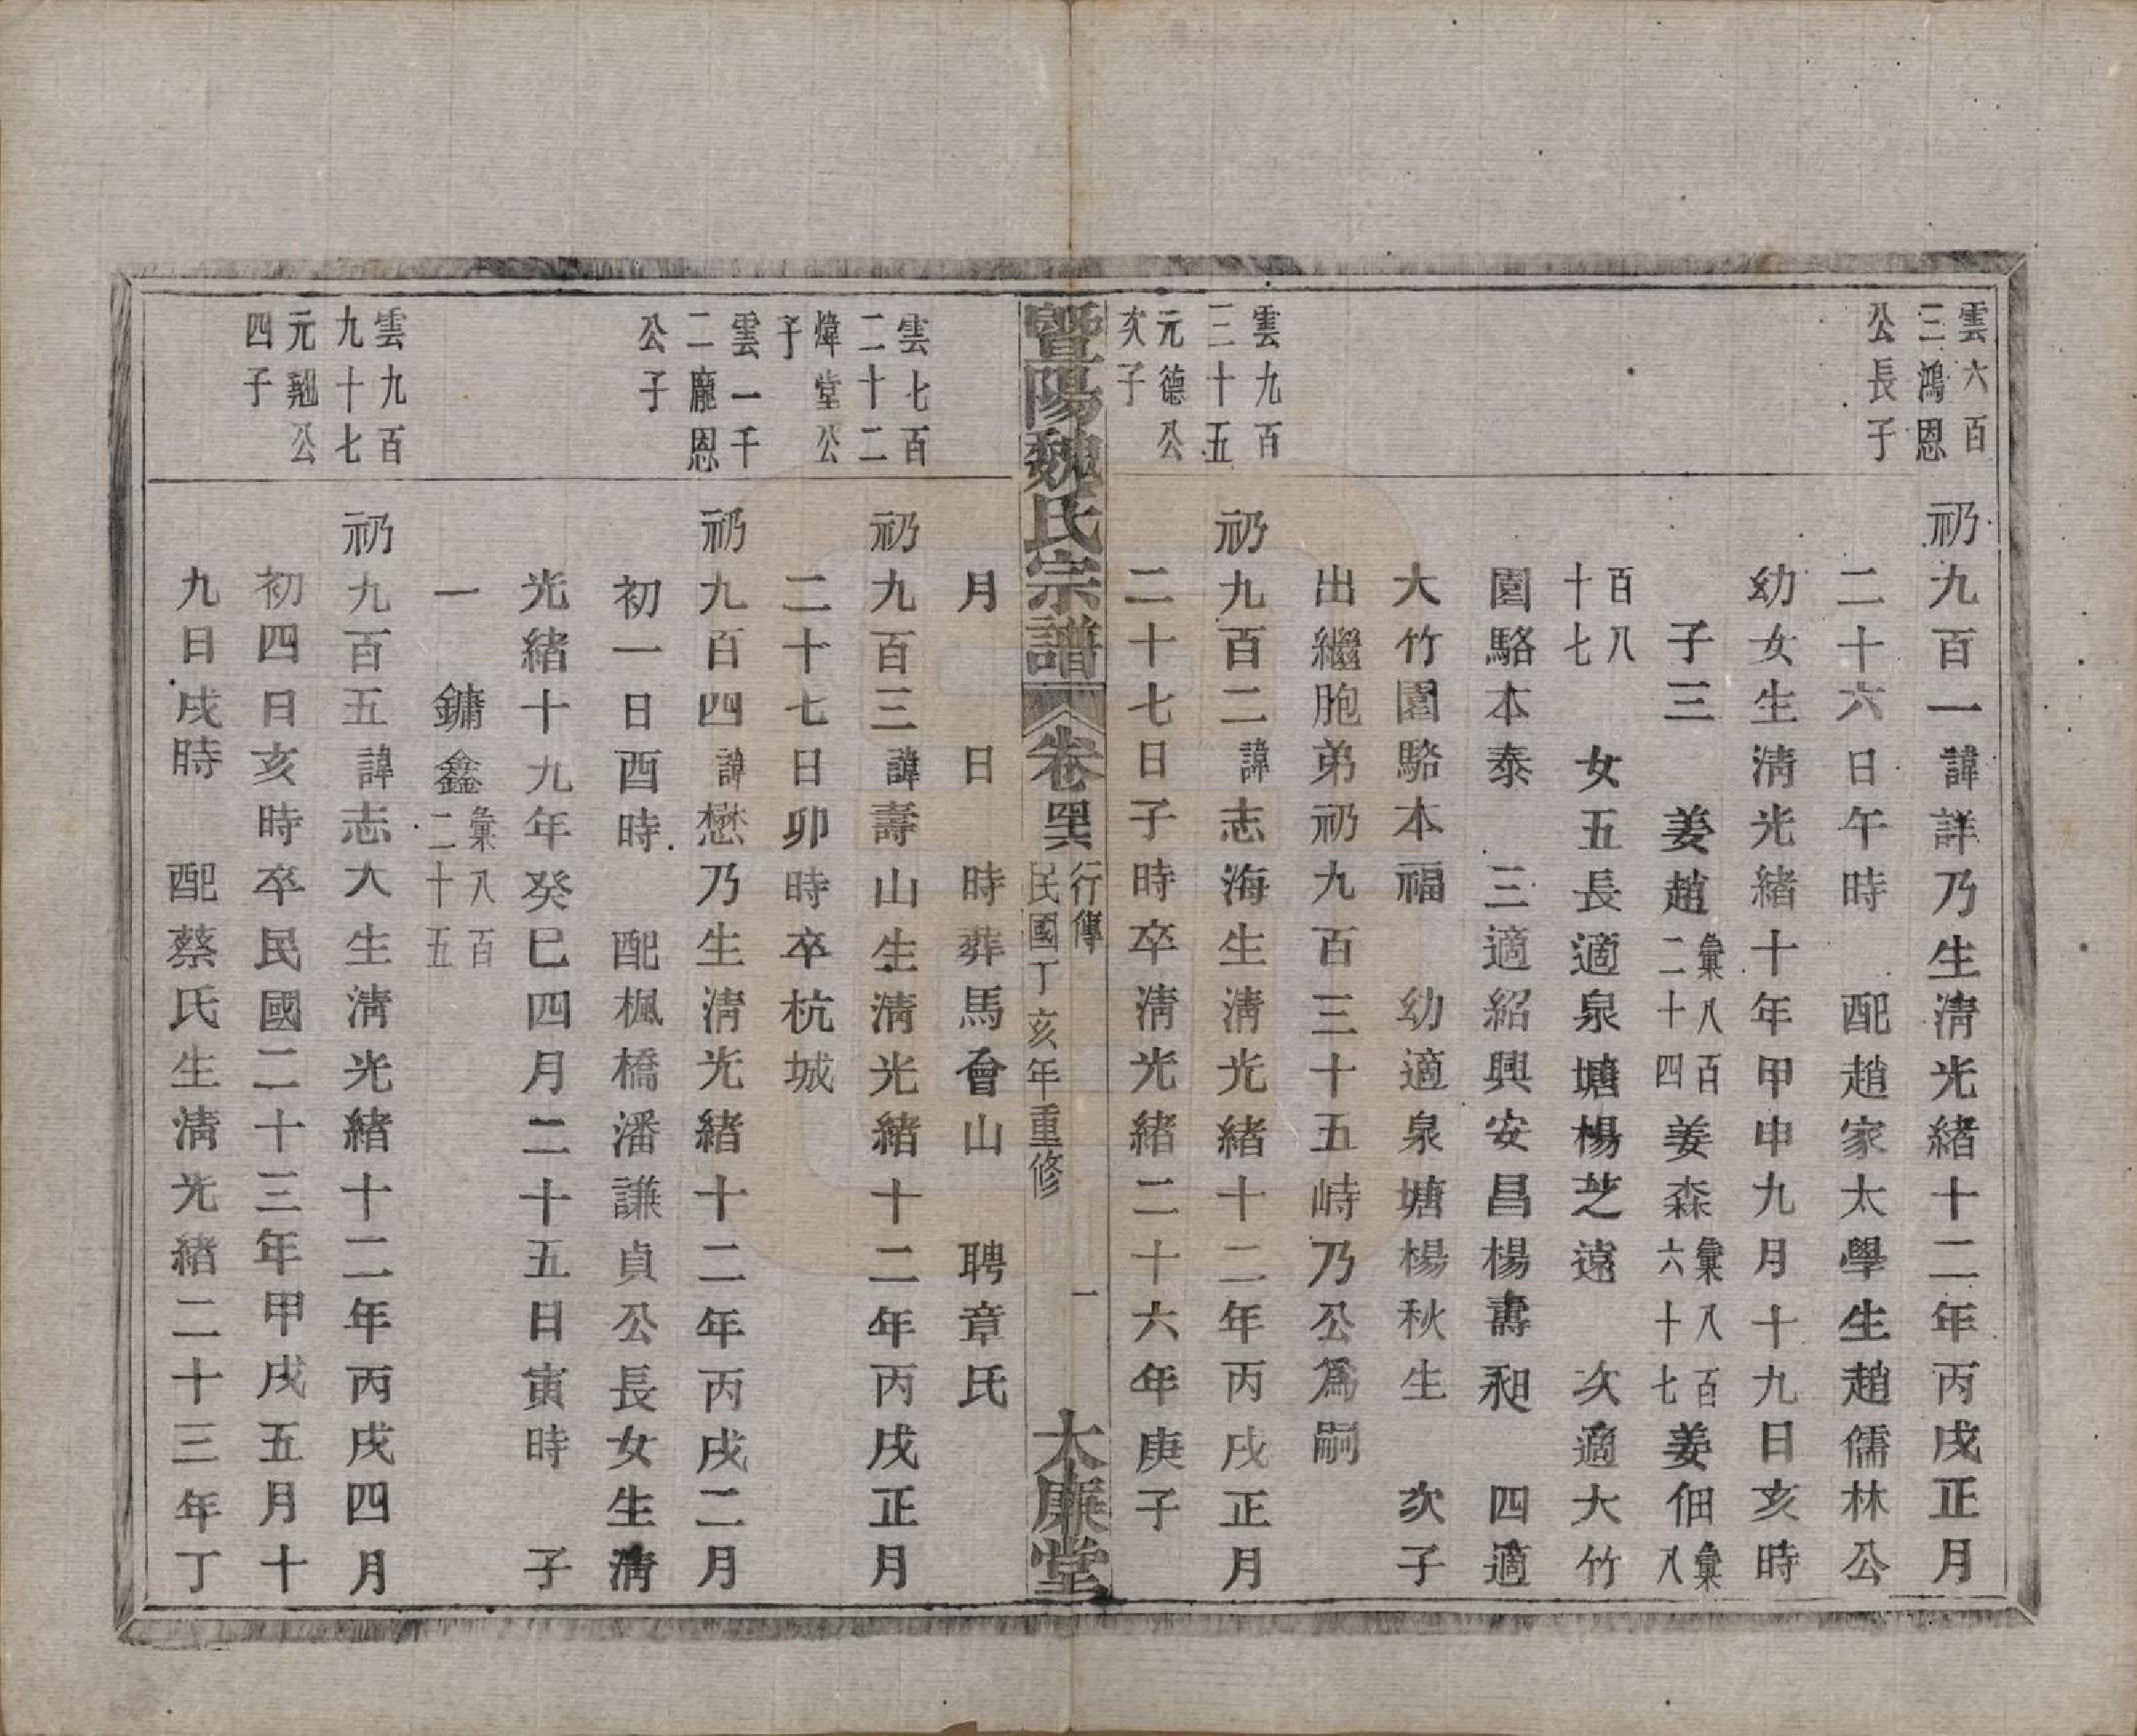 雲六百
三鴻恩
公長子
礽九百一諱詳乃生淸光緒十二年丙戌正月
二十六日午時 配趙家太學生趙儒林公
幼女生淸光緒十年甲申九月十九日亥時
子三 姜趙彙八百二十四姜森彙八百六十七姜佃彙八
百八十七 女五長適泉塘楊芝遠 次適大竹
園駱本泰 三適紹興安昌楊壽和 四適
大竹園駱本福 幼適泉塘楊秋生 次子
出繼胞弟礽九百三十五峙乃公爲嗣
雲九百
三十五
元德公
次子
礽九百二諱志海生淸光緒十二年丙戌正月
二十七日子時卒淸光緒二十六年庚子
暨陽魏氏宗譜 卷 行傳 民國丁亥年重修 一 大廉堂
月 日 時葬馬會山 聘章氏
雲七百
二十二
煒堂公
子
礽九百三諱壽山生淸光緒十二年丙戌正月
二十七日卯時卒杭城
雲一千
二龐恩
公子
礽九百四諱懋乃生淸光緒十二年丙戌二月
初一日酉時 配楓橋潘謙貞公長女生淸
光緒十九年癸巳四月二十五日寅時 子
一 鏞鑫彙八百二十五
雲九百
九十七
元翹公
四子
礽九百五諱志大生淸光緒十二年丙戌四月
初四日亥時卒民國二十三年甲戌五月十
九日戌時 配蔡氏生淸光緒二十三年丁